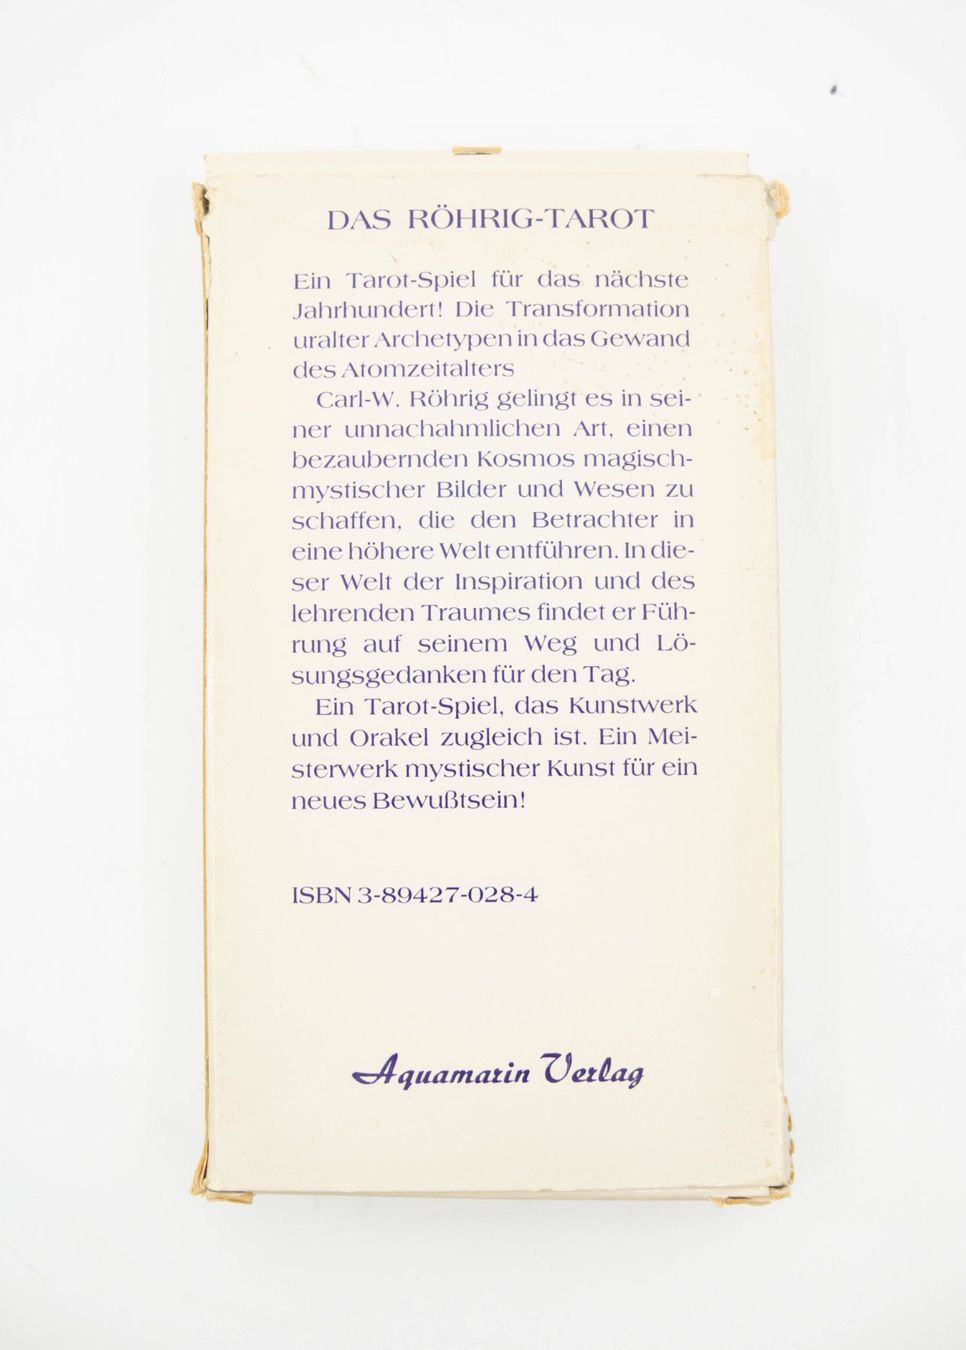 DAS RÖHRIG-TAROT
Ein Tarot-Spiel für das nächste
Jahrhundert! Die Transformation
uralter Archetypen in das Gewand
des Atomzeitalters
Carl-W. Röhrig gelingt es in sei-
ner unnachahmlichen Art, einen
bezaubernden Kosmos magisch-
mystischer Bilder und Wesen zu
schaffen, die den Betrachter in
eine höhere Welt entführen. In die-
ser Welt der Inspiration und des
lehrenden Traumes findet er Füh-
rung auf seinem Weg und Lö-
sungsgedanken für den Tag.
Ein Tarot-Spiel, das Kunstwerk
und Orakel zugleich ist. Ein Mei-
sterwerk mystischer Kunst für ein
neues Bewußtsein!
ISBN 3-89427-028-4
Aquamarin Verlag